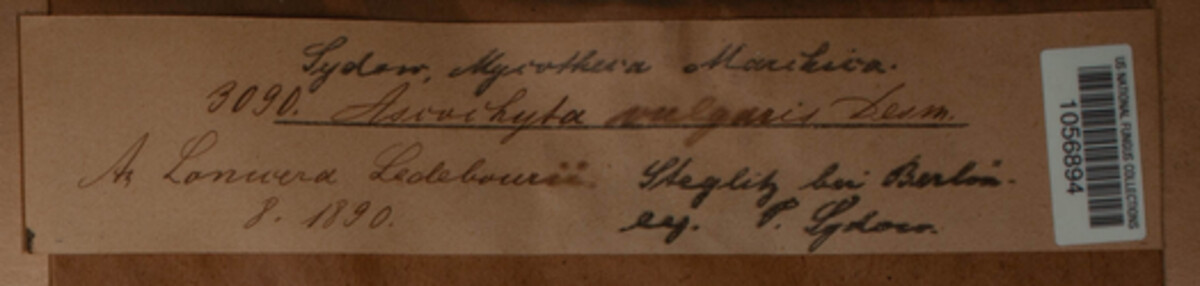 Sydow, Mycotheca Marchica.
3090. Ascochyta vulgaris Desm.
Az Lonicera Ledebourii. Steglitz bei Berlin.
8. 1890. leg. P. Sydow.
US NATIONAL FUNGUS COLLECTIONS
1056894